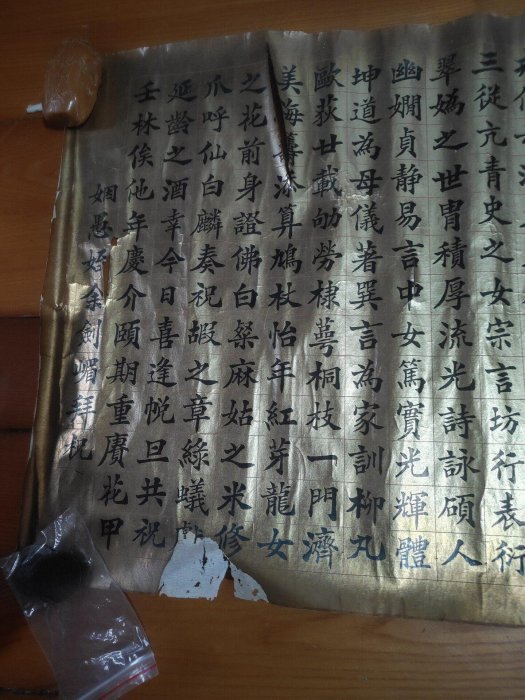 三從亢青史之女宗言坊行表衍
翠媯之世胄積厚流光詩詠碩人
幽嫻貞静易言中女篤實光輝體
坤道為母儀著巽言為家訓柳丸
歐荻廿載劬勞棣萼桐枝一門濟
美海籌添算鳩杖怡年紅芽龍女
之花前身證佛白粲麻姑之米修
爪呼仙白麟奏祝嘏之章綠蟻
延齡之酒幸今日喜逢帨旦共祝
壬林俟他年慶介頤期重賡花甲
姻愚姪余劍嵋拜祝